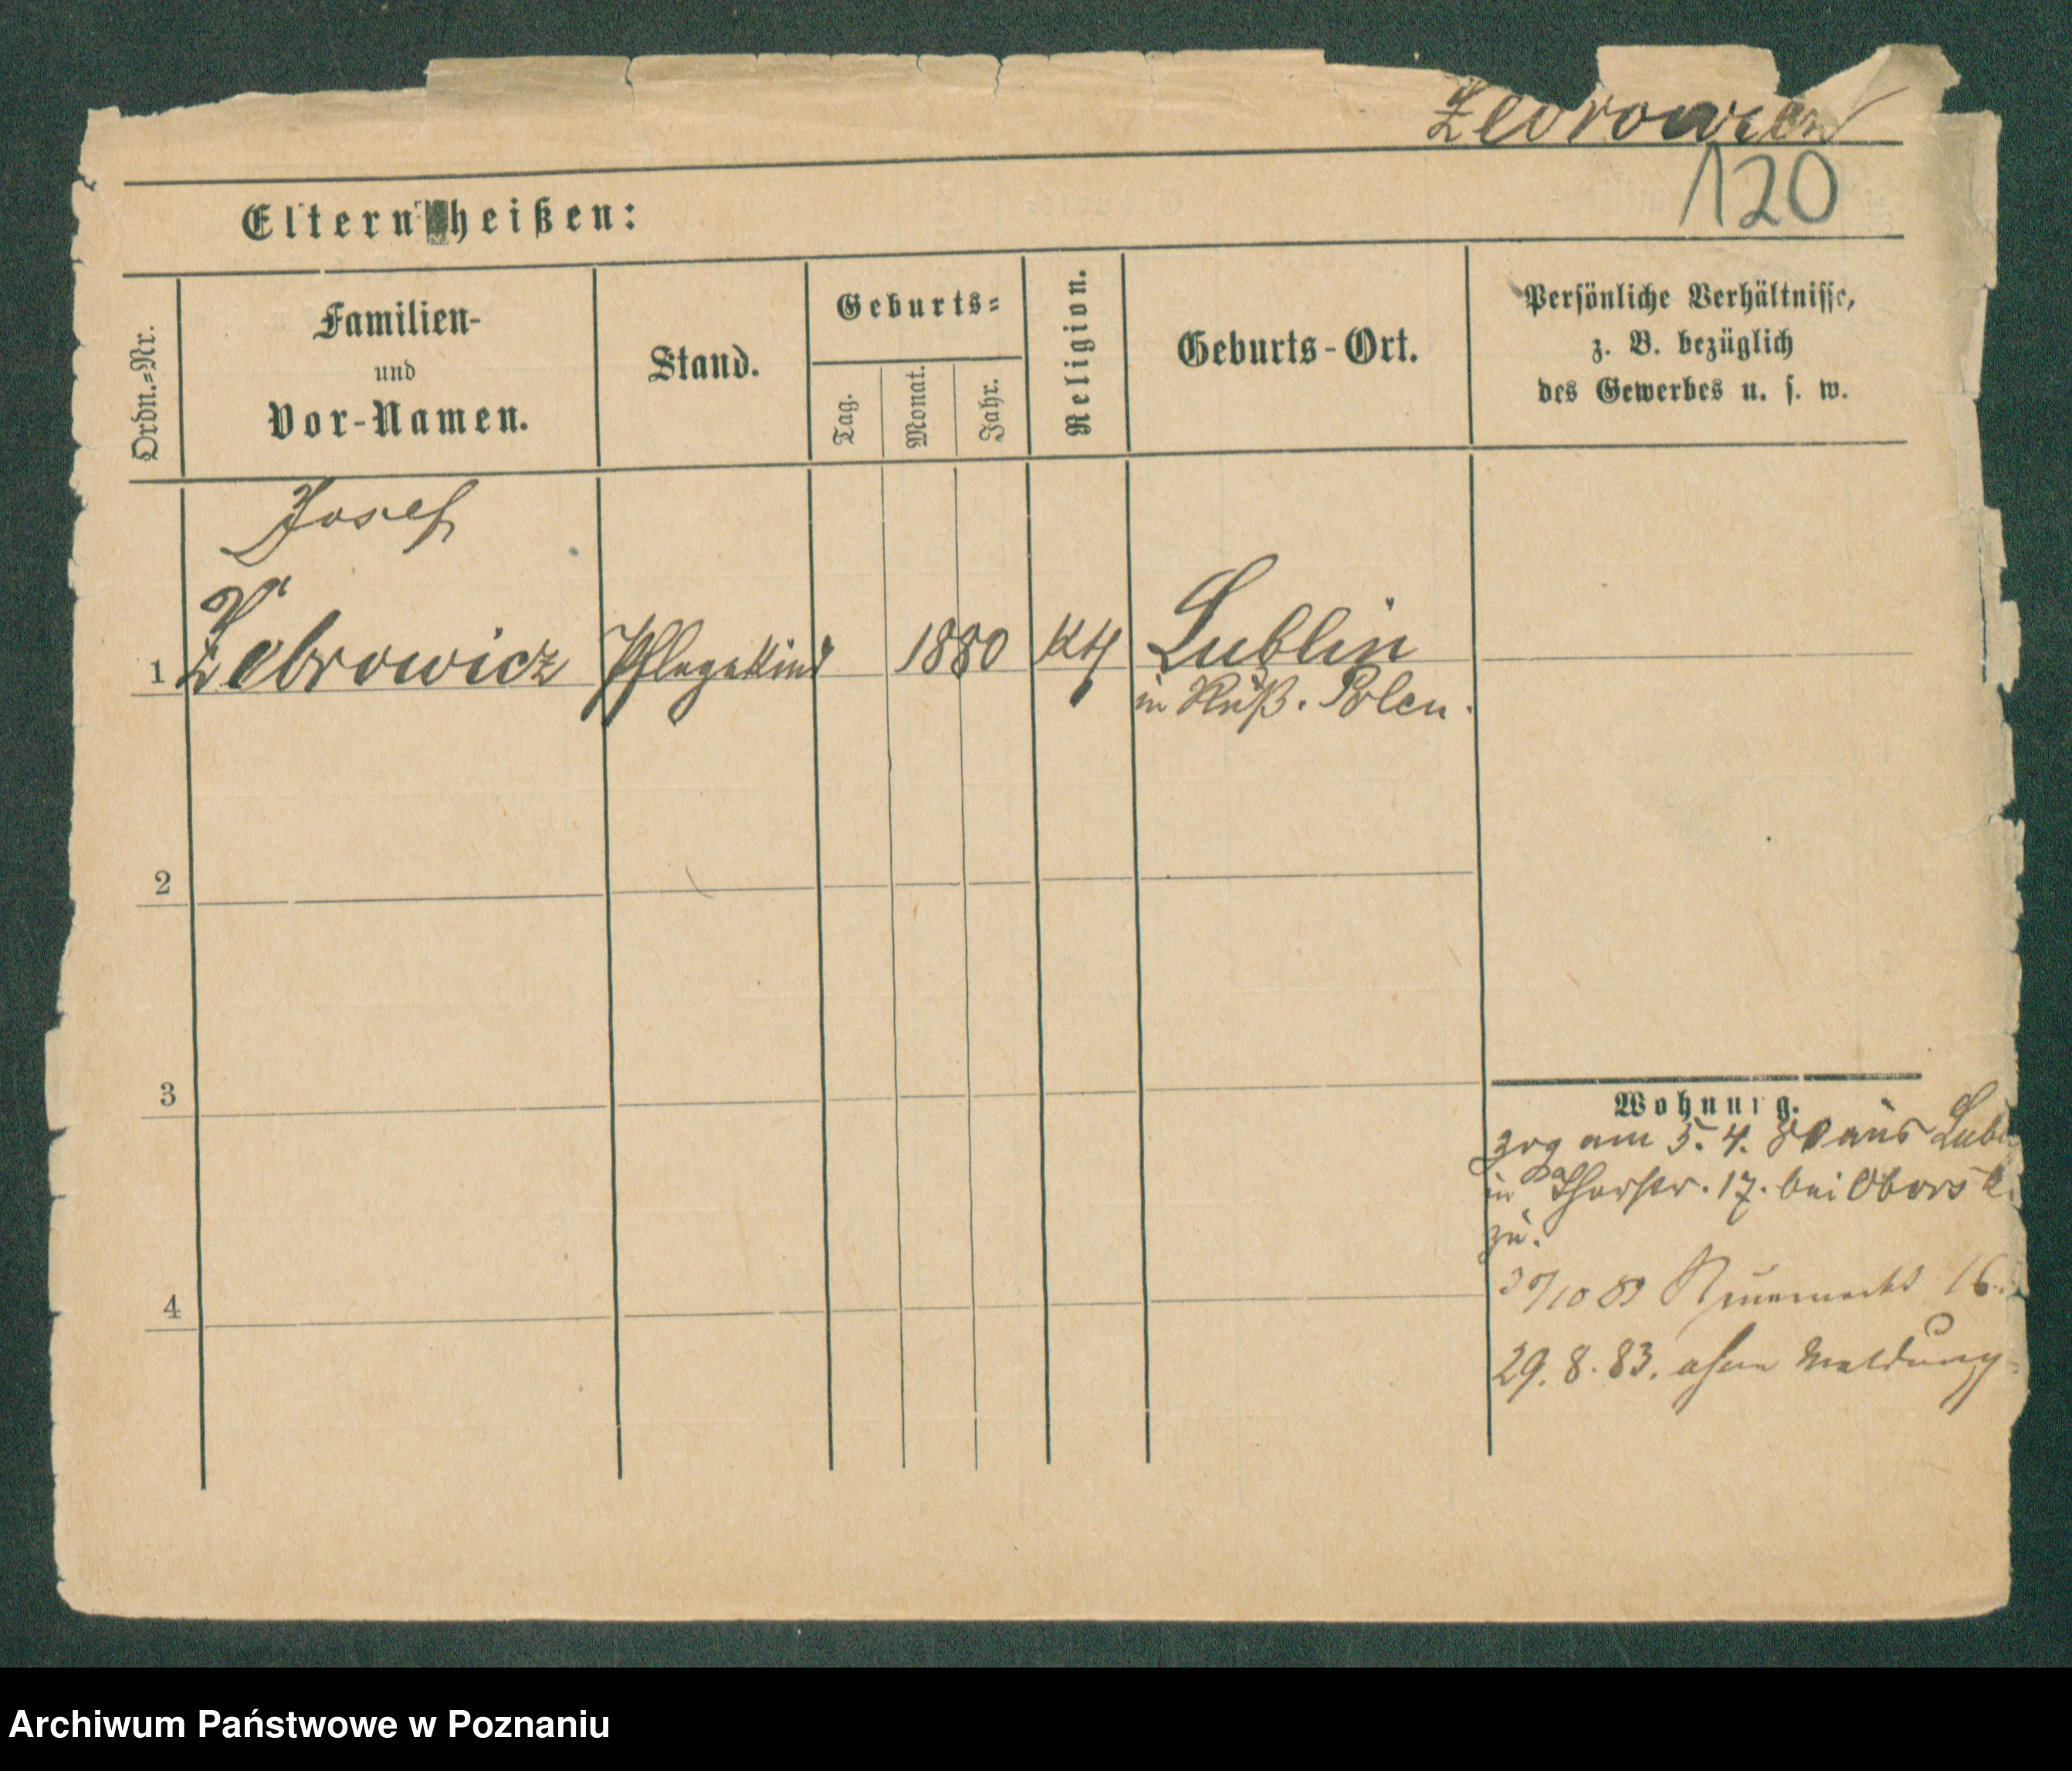 Zebrowicz
120
Eltern heißen:
Ordn.=Nr.
Familien-
und
Vor-Namen.
Stand.
Geburts=
Tag.
Monat.
Jahr.
Religion.
Geburts-Ort.
Persönliche Verhältnisse,
z. B. bezüglich
des Gewerbes u. s. w.
Josef
1 Żebrowicz Pflegekind 1880 Kth Lublin
in Ruß. Polen.
2
3
4
Wohnung.
zog am 5. 4. 80 aus Lub
in Thorstr. 17. bei Oborski
zu.
10 Neuemarkt 16.
29. 8. 83. ohne Meldung
Archiwum Państwowe w Poznaniu